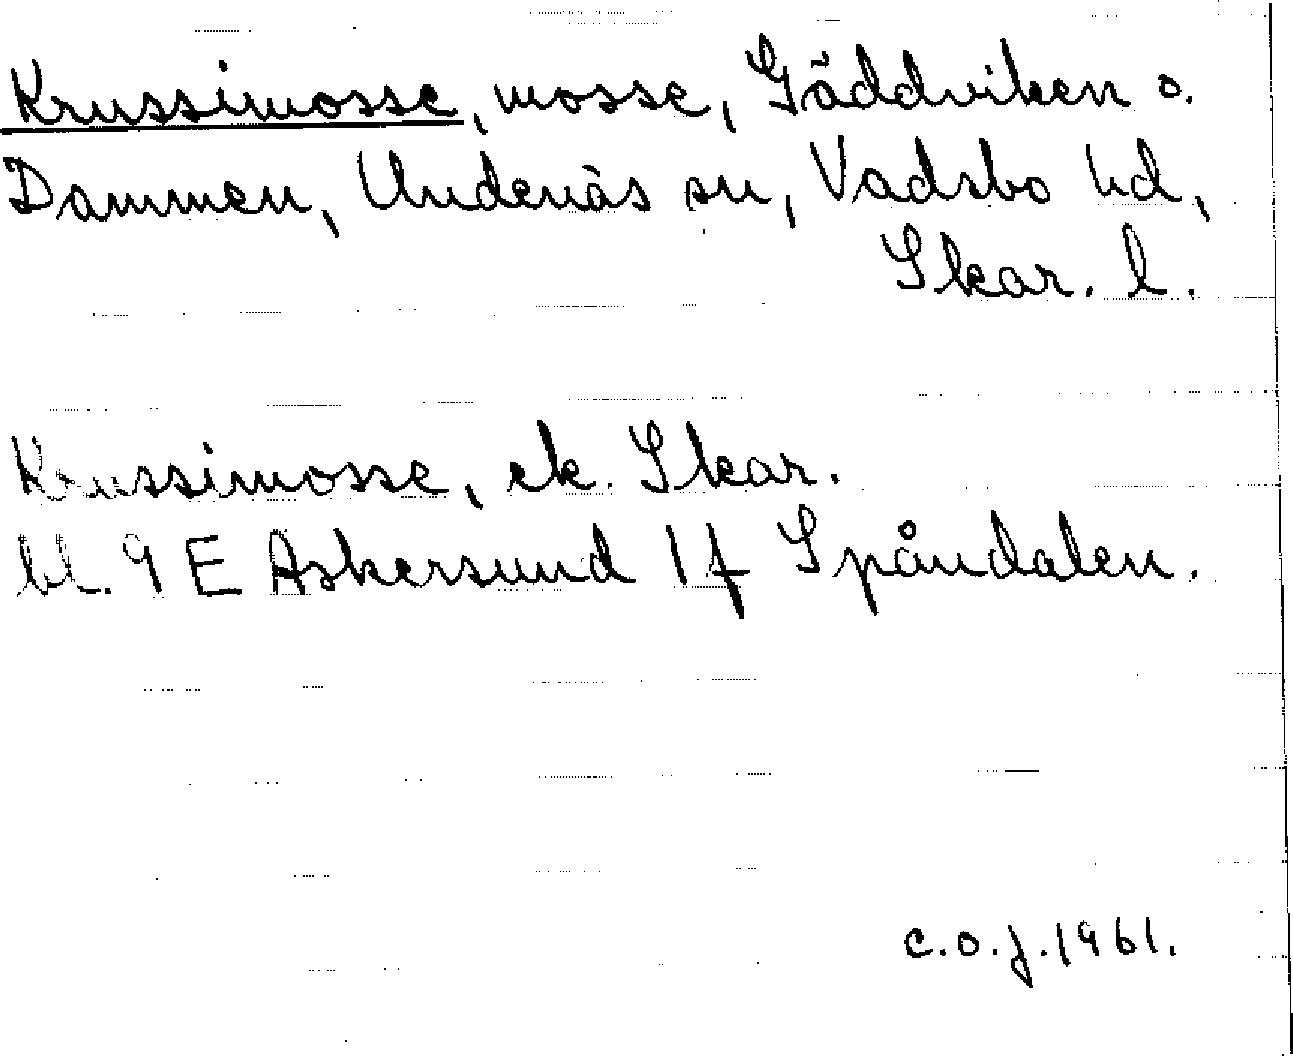 Krussimosse, mosse, Gäddviken o.
Dammen, Undenäs sn, Vadsbo hd,
Skar. l.
Krussimosse, ek. Skar.
bl. 9 E Askersund 1 f Spåndalen.
c.o.j. 1961.